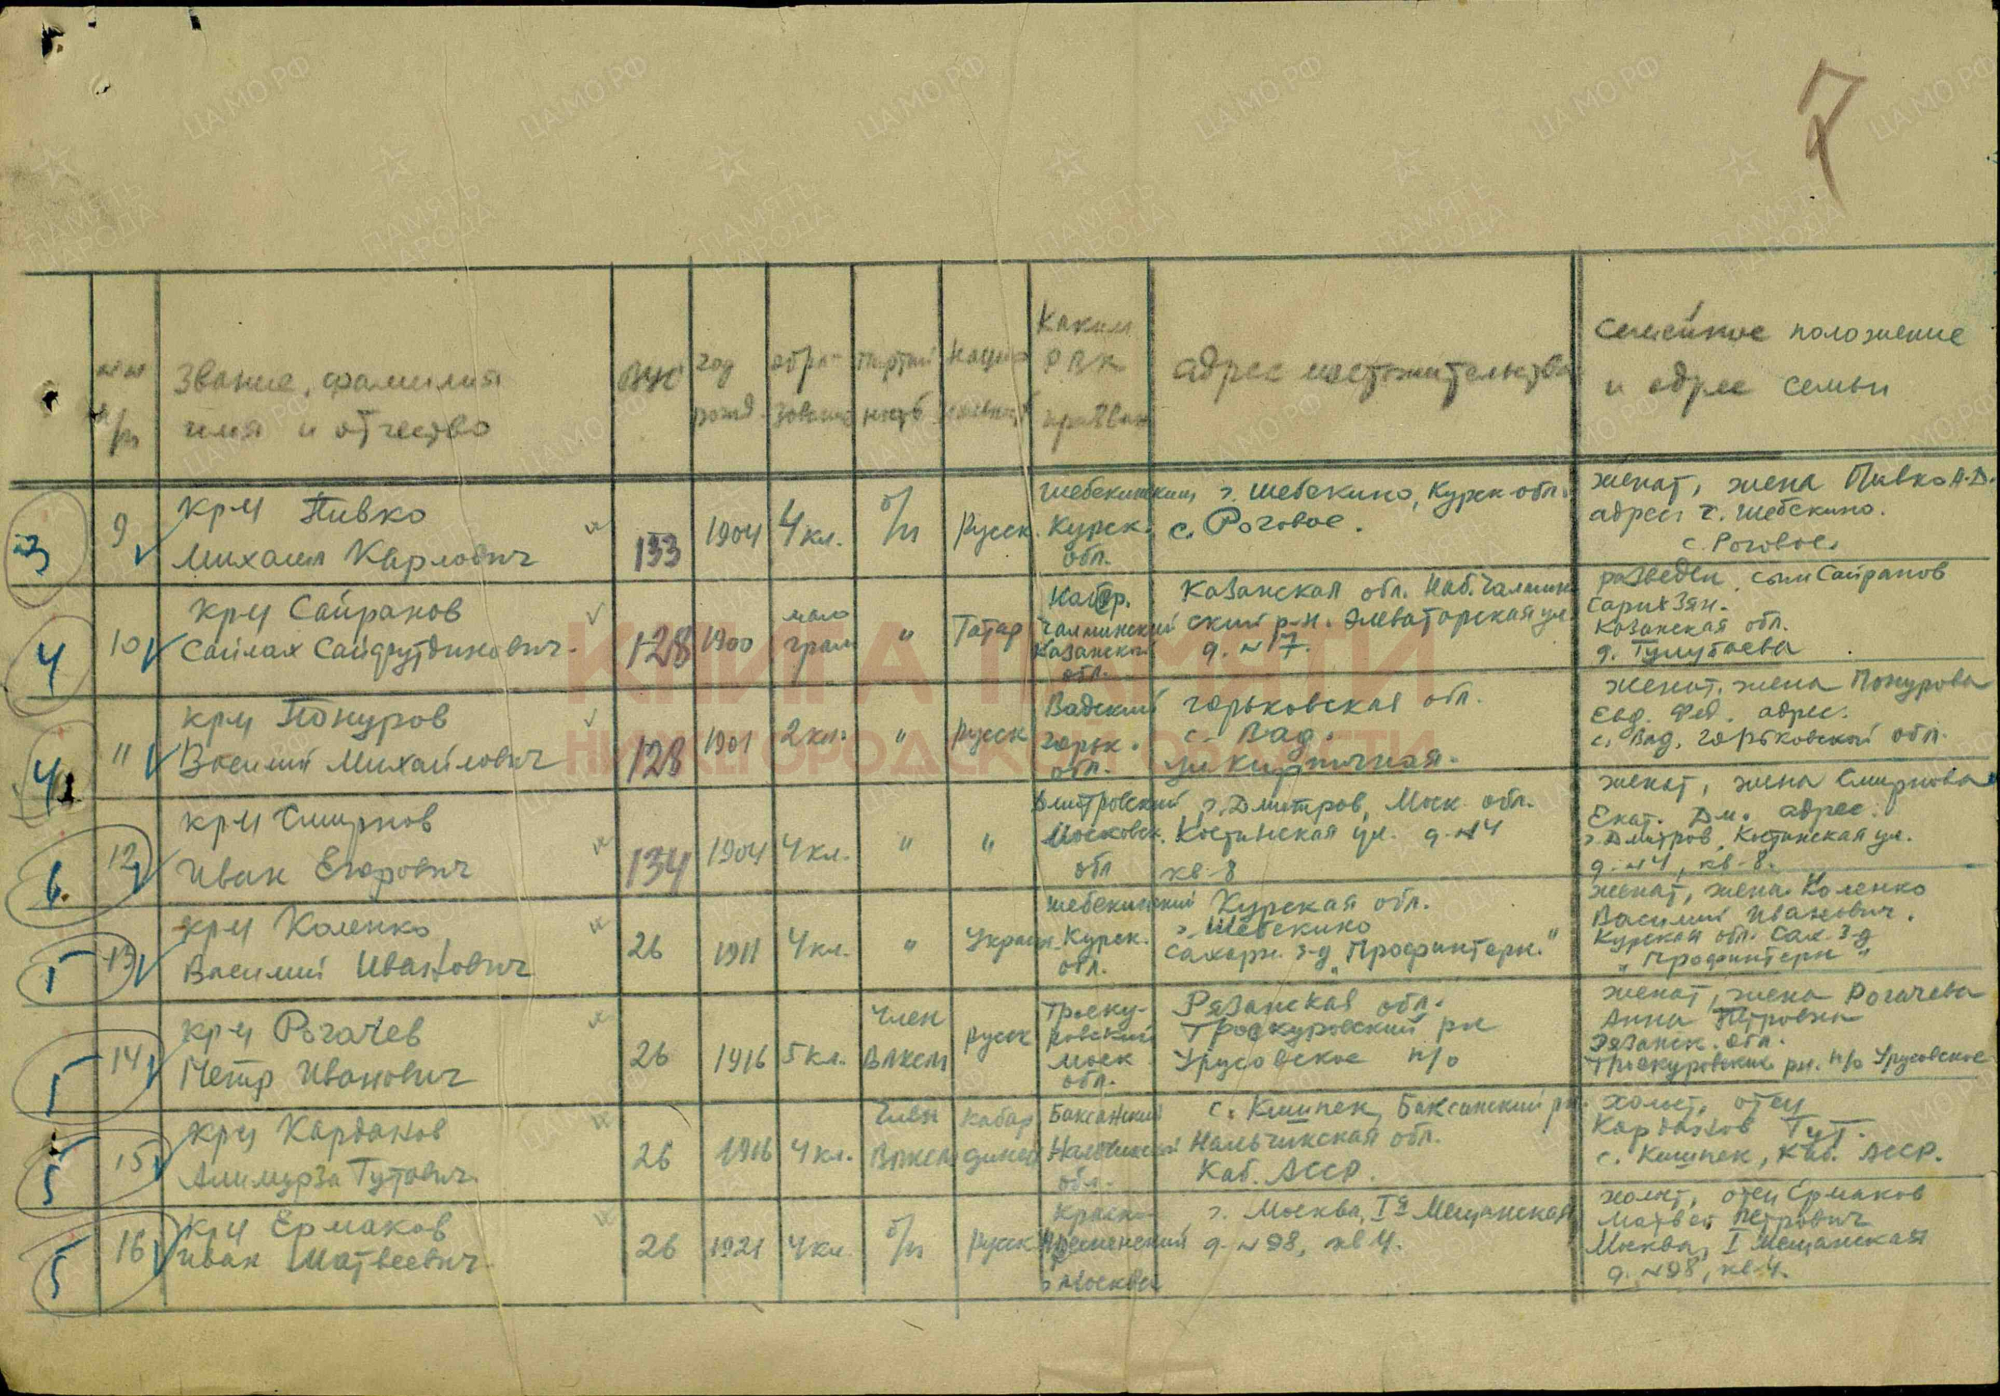 7
№№ п/п
Звание, фамилия имя и отчество
ВУС
год рожд.
образование
партийность
национальность
Каким РВК призван
адрес местожительства
семейное положение и адрес семьи
3
9
кр-ц Пивко
Михаил Карлович
133
1904
4 кл.
б/п
Русск.
Шебекинский
Курск.
обл.
г. Шебекино, Курск. обл.
с. Роговое.
женат, жена Пивко А.Д.
адрес: г. Шебекино.
с. Роговое.
4
10
кр-ц Сайранов
Сайлах Сайфутдинович
128
1900
мало
грам
"
Татар
Набер.
Чалнинский
Казанской
обл.
Казанская обл. Наб. Чалнин
ский р-н. Элеваторская ул.
д. № 7.
разведен, сын Сайранов
СарихЗян.
Казанская обл.
д. Тулубаева
4
11
кр-ц Понуров
Василий Михайлович
128
1901
2 кл.
"
Русск
Вадский
Горьк.
обл.
Горьковская обл.
с. Вад.
ул Кирпичная.
женат, жена Понурова
Евд. Фед. адрес.
с. Вад, Горьковской обл.
6.
12
кр-ц Смирнов
Иван Егорович
134
1904
4 кл.
"
"
Дмитровский
Московск.
обл
г. Дмитров, Моск. обл.
Костинская ул. д. №4
кв-8
женат, жена Смирнова
Екат. Дм. адрес.
г. Дмитров, Костинская ул.
д. №4, кв-8.
5
13
кр-ц Коленко
Василий Иванович
26
1911
4 кл.
"
Украин.
Шебекинский
Курск.
обл.
Курская обл.
г. Шебекино
Сахарн. з-д „Профинтерн."
женат, жена Коленко
Василий Иванович.
Курская обл. Сах. з-д
„Профинтерн"
5
14
кр-ц Рогачев
Петр Иванович
26
1916
5 кл.
член
ВЛКСМ
русск
Троеку-
ровский
моск
обл.
Рязанская обл.
Троекуровский рн
Урусовское п/о
женат, жена Рогачева
Анна Петровна
Рязанск. обл.
Троекуровский рн. п/о Урусовское
5
15
кр-ц Карданов
Алимурза Тутович
26
1916
4 кл.
член
ВЛКСМ
Кабар
динец
Баксанский
Нальчикской
обл.
с. Кишпек, Баксанский рн.
Нальчикская обл.
Каб. АССР.
холост, отец
Карданов Тут.
с. Кишпек, Каб. АССР.
5
16
кр-ц Ермаков
Иван Матвеевич
26
1921
4 кл.
б/п
Русск
Красно-
Пресненский
г. Москва
г. Москва, Iя Мещанская
д. №98, кв 4.
холост, отец Ермаков
Матвей Петрович
Москва, I Мещанская
д. №98, кв-4.
КНИГА ПАМЯТИ
НИЖЕГОРОДСКОЙ ОБЛАСТИ
ЦА МО РФ
ПАМЯТЬ
НАРОДА